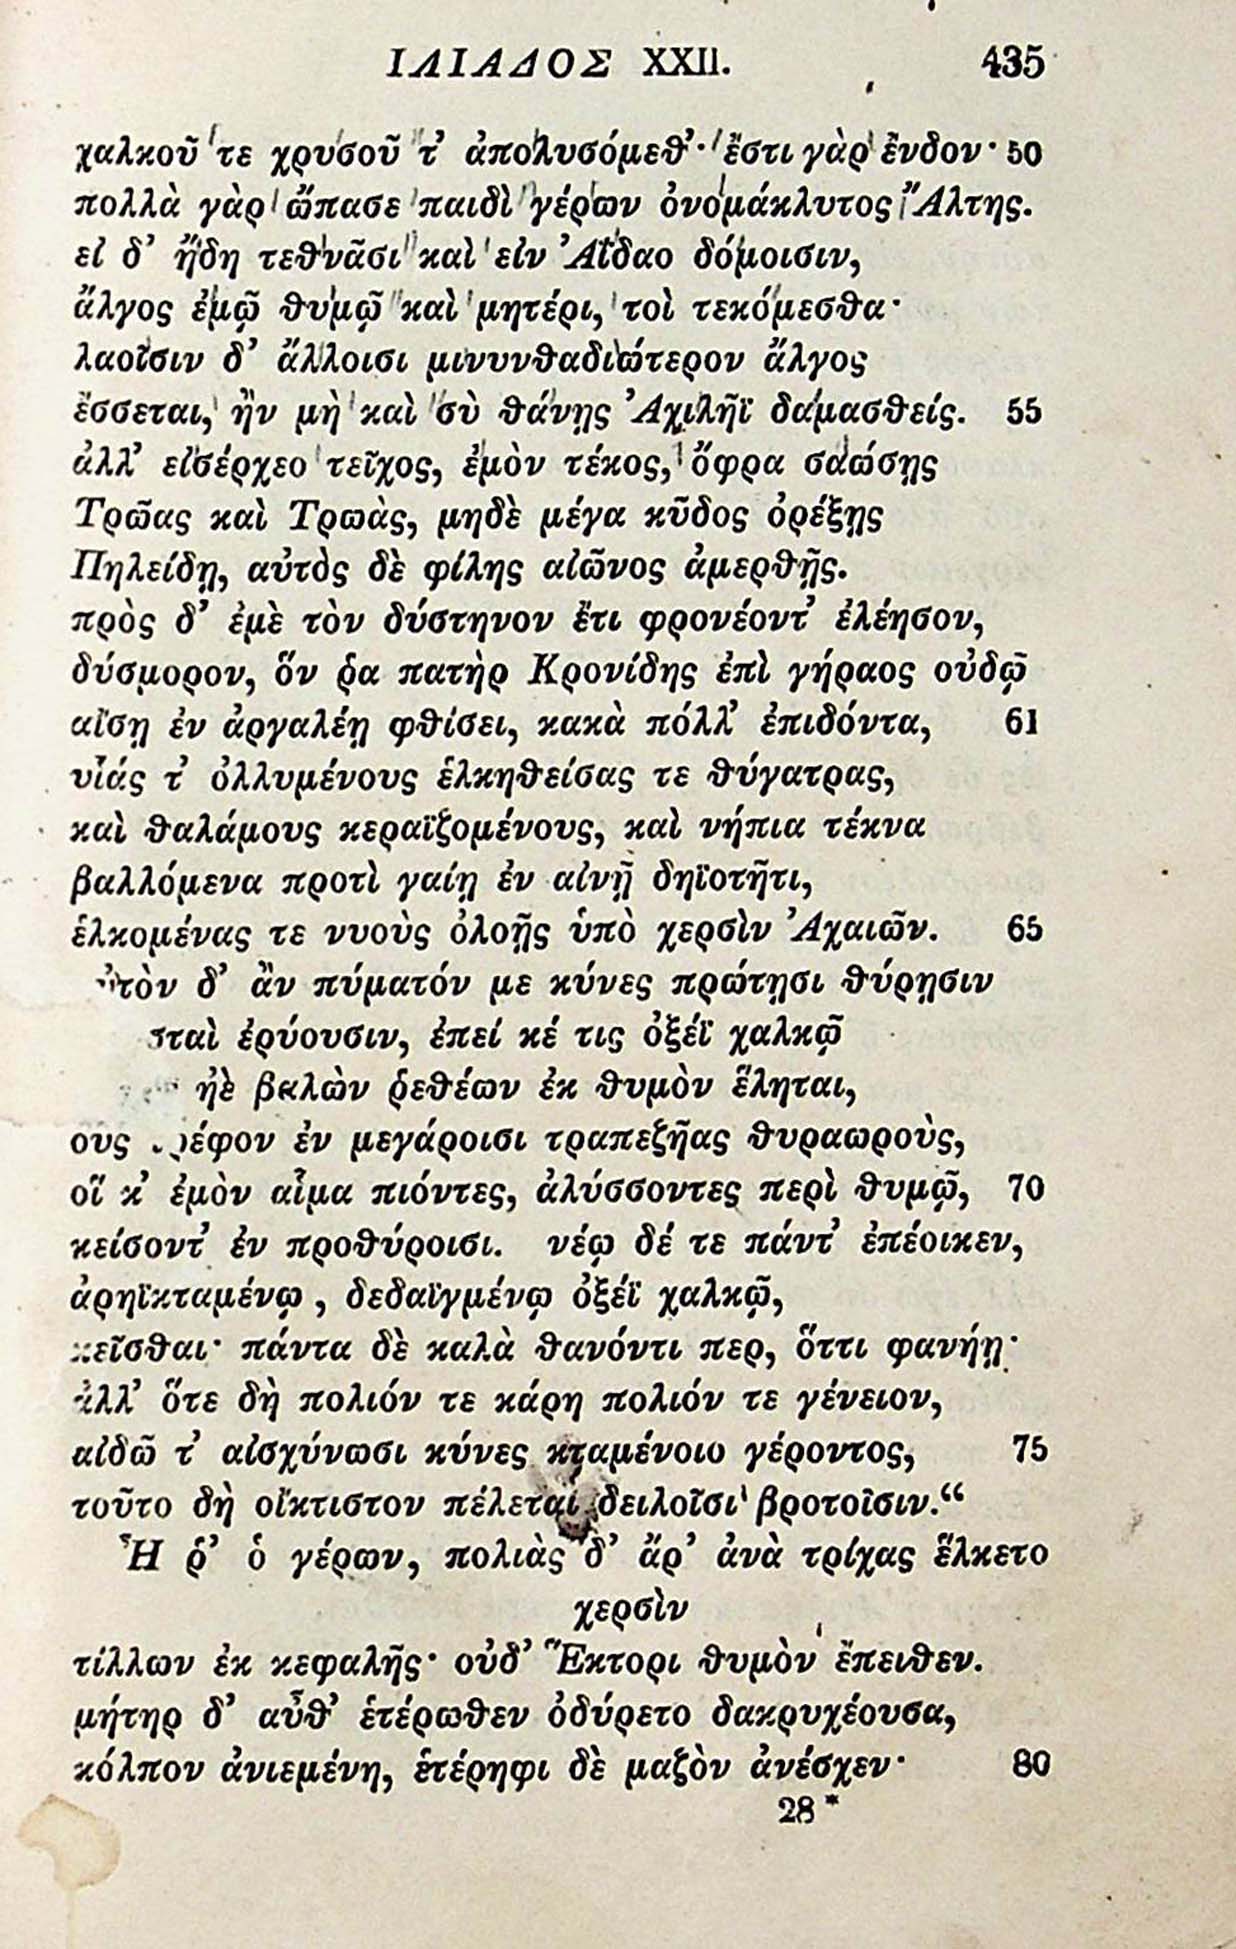 ΙΛΙΑΔΟΣ XXII. 435
χαλκοῦ τε χρυσοῦ τ’ ἀπολυσόμεθ’· ἔστι γὰρ ἔνδον· 50
πολλὰ γὰρ ὤπασε παιδὶ γέρων ὀνομάκλυτος Ἄλτης.
εἰ δ’ ἤδη τεθνᾶσι καὶ εἰν Ἀΐδαο δόμοισιν,
ἄλγος ἐμῷ θυμῷ καὶ μητέρι, τοὶ τεκόμεσθα·
λαοῖσιν δ’ ἄλλοισι μινυνθαδιώτερον ἄλγος
ἔσσεται, ἢν μὴ καὶ σὺ θάνῃς Ἀχιλῆϊ δαμασθείς. 55
ἀλλ’ εἰσέρχεο τεῖχος, ἐμὸν τέκος, ὄφρα σαώσῃς
Τρῶας καὶ Τρωὰς, μηδὲ μέγα κῦδος ὀρέξῃς
Πηλείδῃ, αὐτὸς δὲ φίλης αἰῶνος ἀμερθῇς.
πρὸς δ’ ἐμὲ τὸν δύστηνον ἔτι φρονέοντ’ ἐλέησον,
δύσμορον, ὅν ῥα πατὴρ Κρονίδης ἐπὶ γήραος οὐδῷ
αἴσῃ ἐν ἀργαλέῃ φθίσει, κακὰ πόλλ’ ἐπιδόντα, 61
υἷάς τ’ ὀλλυμένους ἑλκηθείσας τε θύγατρας,
καὶ θαλάμους κεραϊζομένους, καὶ νήπια τέκνα
βαλλόμενα προτὶ γαίῃ ἐν αἰνῇ δηϊοτῆτι,
ἑλκομένας τε νυοὺς ὀλοῇς ὑπὸ χερσὶν Ἀχαιῶν. 65
δ’ ἂν πύματόν με κύνες πρώτῃσι θύρῃσιν
ἐρύουσιν, ἐπεί κέ τις ὀξέϊ χαλκῷ
ἠὲ βαλὼν ῥεθέων ἐκ θυμὸν ἕληται,
ἐν μεγάροισι τραπεζῆας θυραωροὺς,
οἵ κ’ ἐμὸν αἷμα πιόντες, ἀλύσσοντες περὶ θυμῷ, 70
κείσοντ’ ἐν προθύροισι. νέῳ δέ τε πάντ’ ἐπέοικεν,
ἀρηϊκταμένῳ, δεδαϊγμένῳ ὀξέϊ χαλκῷ,
κεῖσθαι· πάντα δὲ καλὰ θανόντι περ, ὅττι φανήῃ·
ἀλλ’ ὅτε δὴ πολιόν τε κάρη πολιόν τε γένειον,
αἰδῶ τ’ αἰσχύνωσι κύνες κταμένοιο γέροντος, 75
τοῦτο δὴ οἴκτιστον πέλεται δειλοῖσι βροτοῖσιν.“
Ἦ ῥ’ ὁ γέρων, πολιὰς δ’ ἄρ’ ἀνὰ τρίχας ἕλκετο
χερσὶν
τίλλων ἐκ κεφαλῆς· οὐδ’ Ἕκτορι θυμὸν ἔπειθεν.
μήτηρ δ’ αὖθ’ ἑτέρωθεν ὀδύρετο δακρυχέουσα,
κόλπον ἀνιεμένη, ἑτέρηφι δὲ μαζὸν ἀνέσχεν· 80
28*